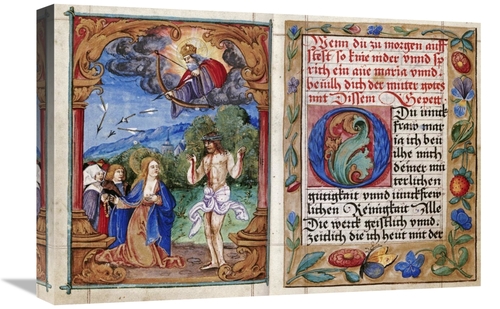 Wenn du zu morgen auff
stest so knie nider vnnd sp
rich ein aue maria vnnd
beuilh dich der mutter gotes
mit Dissem Gepett.
O Du iunck
fraw mar
ia ich beu
ilhe mich
deiner mit
terlichen
gütigkait vnnd iunckfrew
lichen Reinigkait Alle
Die werck geistlich vnnd
zeitlich die ich heut mit der